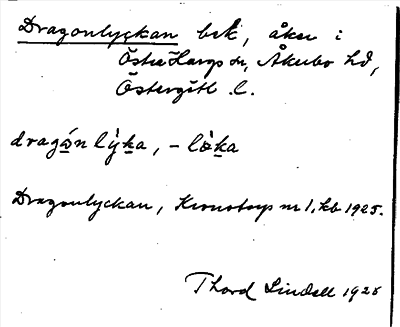 Dragonlyckan bek, åker i
Östra Hargs sn, Åkerbo hd,
Östergötl. l.
dragón lỳka, - lὼka
Dragonlyckan, Kronotorp nr 1, kb 1925.
Thord Lindell 1928